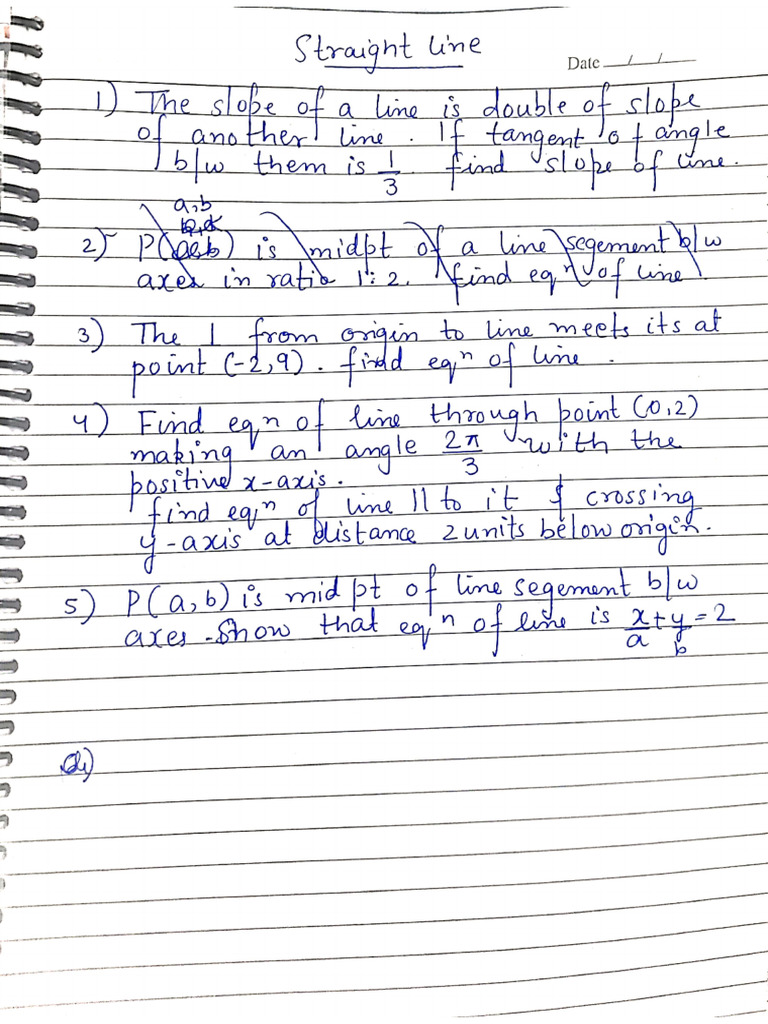 Straight line
Date / /
1) The slope of a line is double of slope
of another line. If tangent of angle
b/w them is 1/3 find slope of line.
a,b
2) P( b) is midpt of a line segement b/w
axes in ratio 1:2. find eqⁿ of line
3) The ⊥ from origin to line meets its at
point (-2,9). find eqⁿ of line.
4) Find eqn of line through point (0,2)
making an angle 2π/3 with the
positive x-axis.
find eqⁿ of line || to it & crossing
y-axis at distance 2units below origin.
5) P(a,b) is mid pt of line segement b/w
axes. Show that eqⁿ of line is x/a + y/b = 2